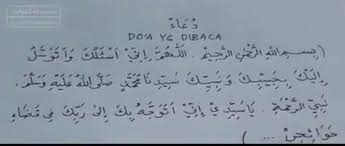 دُعَاءْ
DO'A YG DIBACA
(بِسْمِ اللهِ الرَّحْمٰنِ الرَّحِيْمِ . اَللّٰهُمَّ اِنِّيْ اَسْئَلُكَ وَاَتَوَسَّلُ
اِلَيْكَ بِحَبِيْبِكَ وَنَبِيِّكَ سَيِّدِنَا مُحَمَّدٍ صَلَّى اللهُ عَلَيْهِ وَسَلَّمَ،
نَبِيِّ الرَّحْمَةِ . يَاسَيِّدِيْ اِنِّيْ اَتَوَجَّهُ بِكَ اِلَى رَبِّكَ فِي قَضَاءِ
حَوَائِجِيْ ... )